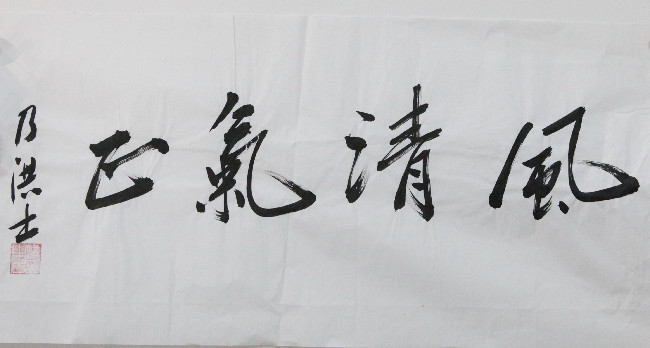 風清氣正
乃洪士